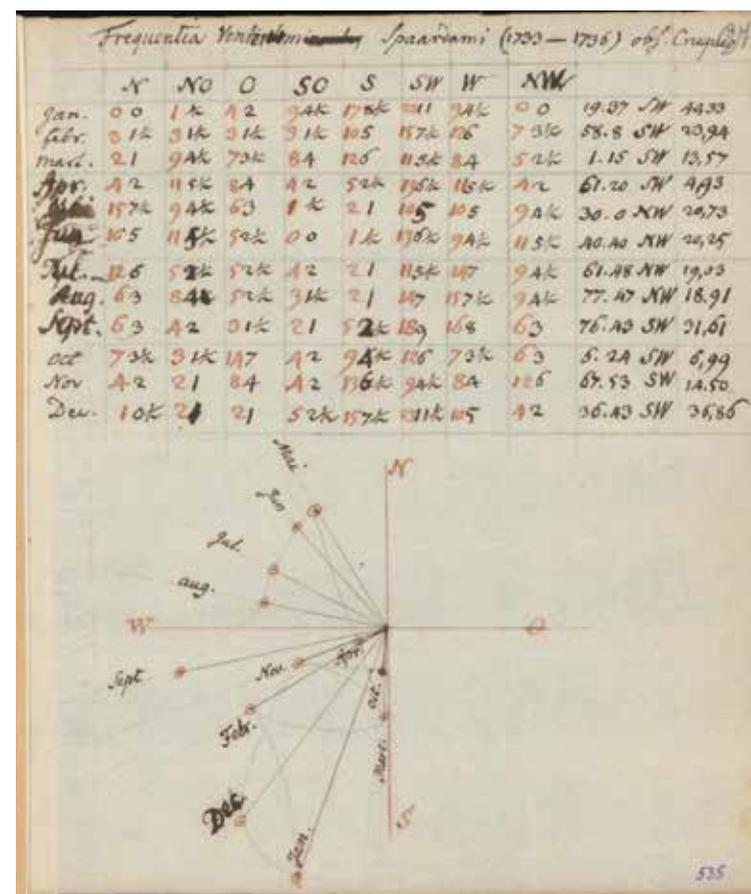 Frequentia Ventorum Spaardami (1733 — 1736) obs. Cruquio
N NO O SO S SW W NW
Jan. 0 0 1 ½ 4 2 9 4½ 17 8½ 11 9 4½ 0 0 19.37 SW 44.33
febr. 3 1½ 3 1½ 3 1½ 3 1½ 10 5 15 7½ 12 6 7 3½ 58.8 SW 23,94
mart. 2 1 9 4½ 7 3½ 8 4 12 6 11 5½ 8 4 5 2½ 1.15 SW 13,57
Apr. 4 2 11 5½ 8 4 4 2 5 2½ 13 6½ 11 5½ 4 2 61.20 SW 4,93
15 7½ 9 4½ 6 3 1 ½ 2 1 10 5 10 5 9 4½ 30.0 NW 20,73
Jun 10 5 11 5½ 5 2½ 0 0 1 ½ 13 6½ 9 4½ 11 5½ 40.40 NW 20,25
12 6 5 2½ 5 2½ 4 2 2 1 11 5½ 14 7 9 4½ 61.48 NW 19,03
Aug. 6 3 8 4 5 2½ 3 1½ 2 1 14 7 15 7½ 9 4½ 77.47 NW 18.91
Sept. 6 3 4 2 3 1½ 2 1 5 2½ 18 9 16 8 6 3 76.43 SW 31,61
oct 7 3½ 3 1½ 14 7 4 2 9 4½ 12 6 7 3½ 6 3 5.24 SW 6,99
Nov 4 2 2 1 8 4 4 2 13 6½ 9 4½ 8 4 12 6 67.53 SW 14.50
Dec. 1 0½ 2 1 2 1 5 2½ 15 7½ 23 11½ 10 5 4 2 36.43 SW 36,86
Mai.
N
Jun
Jul.
aug.
W
O
Apr.
Nov.
Sept
oct.
Febr.
Mart.
Dec.
S
Jan.
535